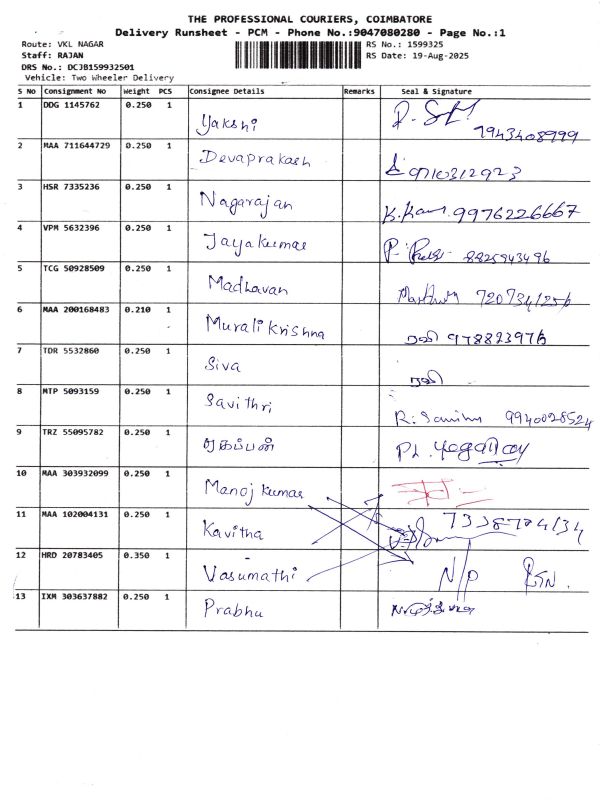 THE PROFESSIONAL COURIERS, COIMBATORE
Delivery Runsheet - PCM - Phone No.:9047080280 - Page No.:1
Route: VKL NAGAR RS No.: 1599325
Staff: RAJAN RS Date: 19-Aug-2025
DRS No.: DCJB159932501
Vehicle: Two Wheeler Delivery
S No Consignment No Weight PCS Consignee Details Remarks Seal & Signature
1 DDG 1145762 0.250 1 Yakshi 7943408999
2 MAA 711644729 0.250 1 Devaprakash 9710312923
3 HSR 7335236 0.250 1 Nagarajan 9976226667
4 VPM 5632396 0.250 1 Jayakumar 8825943496
5 TCG 50928509 0.250 1 Madhavan
6 MAA 200168483 0.210 1 Murali Krishna ரவி 978823976
7 TDR 5532860 0.250 1 Siva ரவி
8 MTP 5093159 0.250 1 Savithri 9940028524
9 TRZ 55095782 0.250 1
10 MAA 303932099 0.250 1 Manoj Kumar
11 MAA 102004131 0.250 1 Kavitha 7338704134
12 HRD 20783405 0.350 1 Vasumathi N/P
13 IXM 303637882 0.250 1 Prabhu